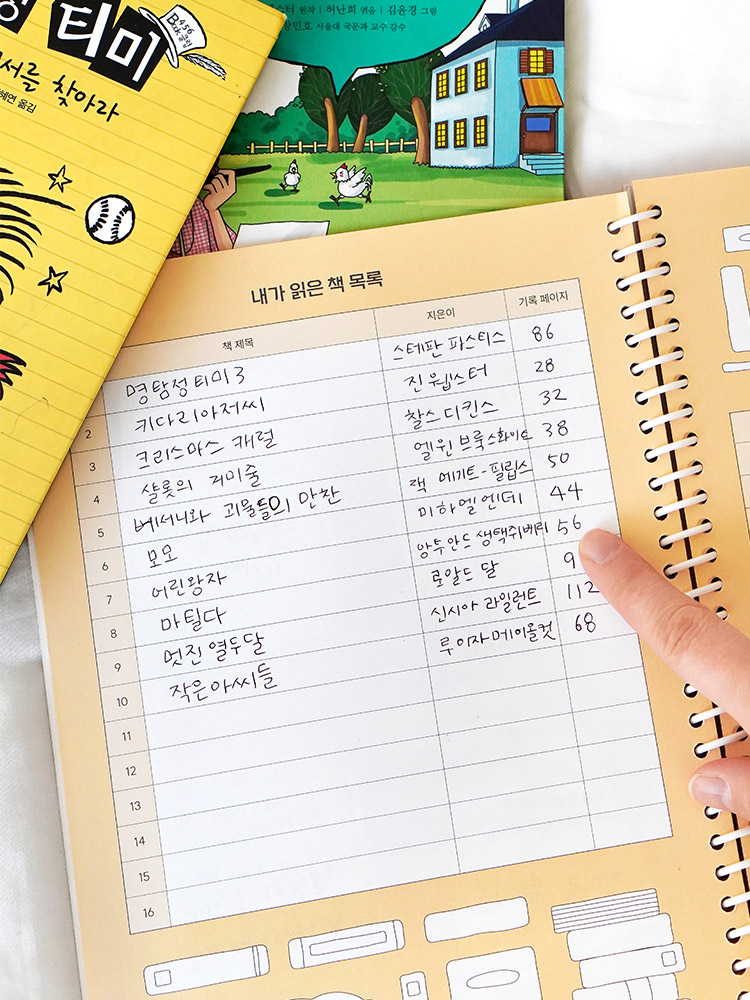 티미
456
Book클럽
서를 찾아라
혜연 옮김
스터 원작 | 허난희 엮음 | 김윤경 그림
서울대 국문과 교수 감수
내가 읽은 책 목록
책 제목 지은이 기록 페이지
명탐정 티미 3 스테판 파스티스 86
2 키다리아저씨 진 웹스터 28
3 크리스마스 캐럴 찰스 디킨스 32
4 샬롯의 거미줄 엘윈 브룩스화이트 38
5 베서니와 괴물들의 만찬 잭 메기트-필립스 50
6 모모 미하엘 엔데 44
7 어린왕자 앙투안드 생택쥐베리 56
8 마틸다 로알드 달
9 멋진 열두달 신시아 라일런트 112
10 작은아씨들 루이자메이올컷 68
11
12
13
14
15
16